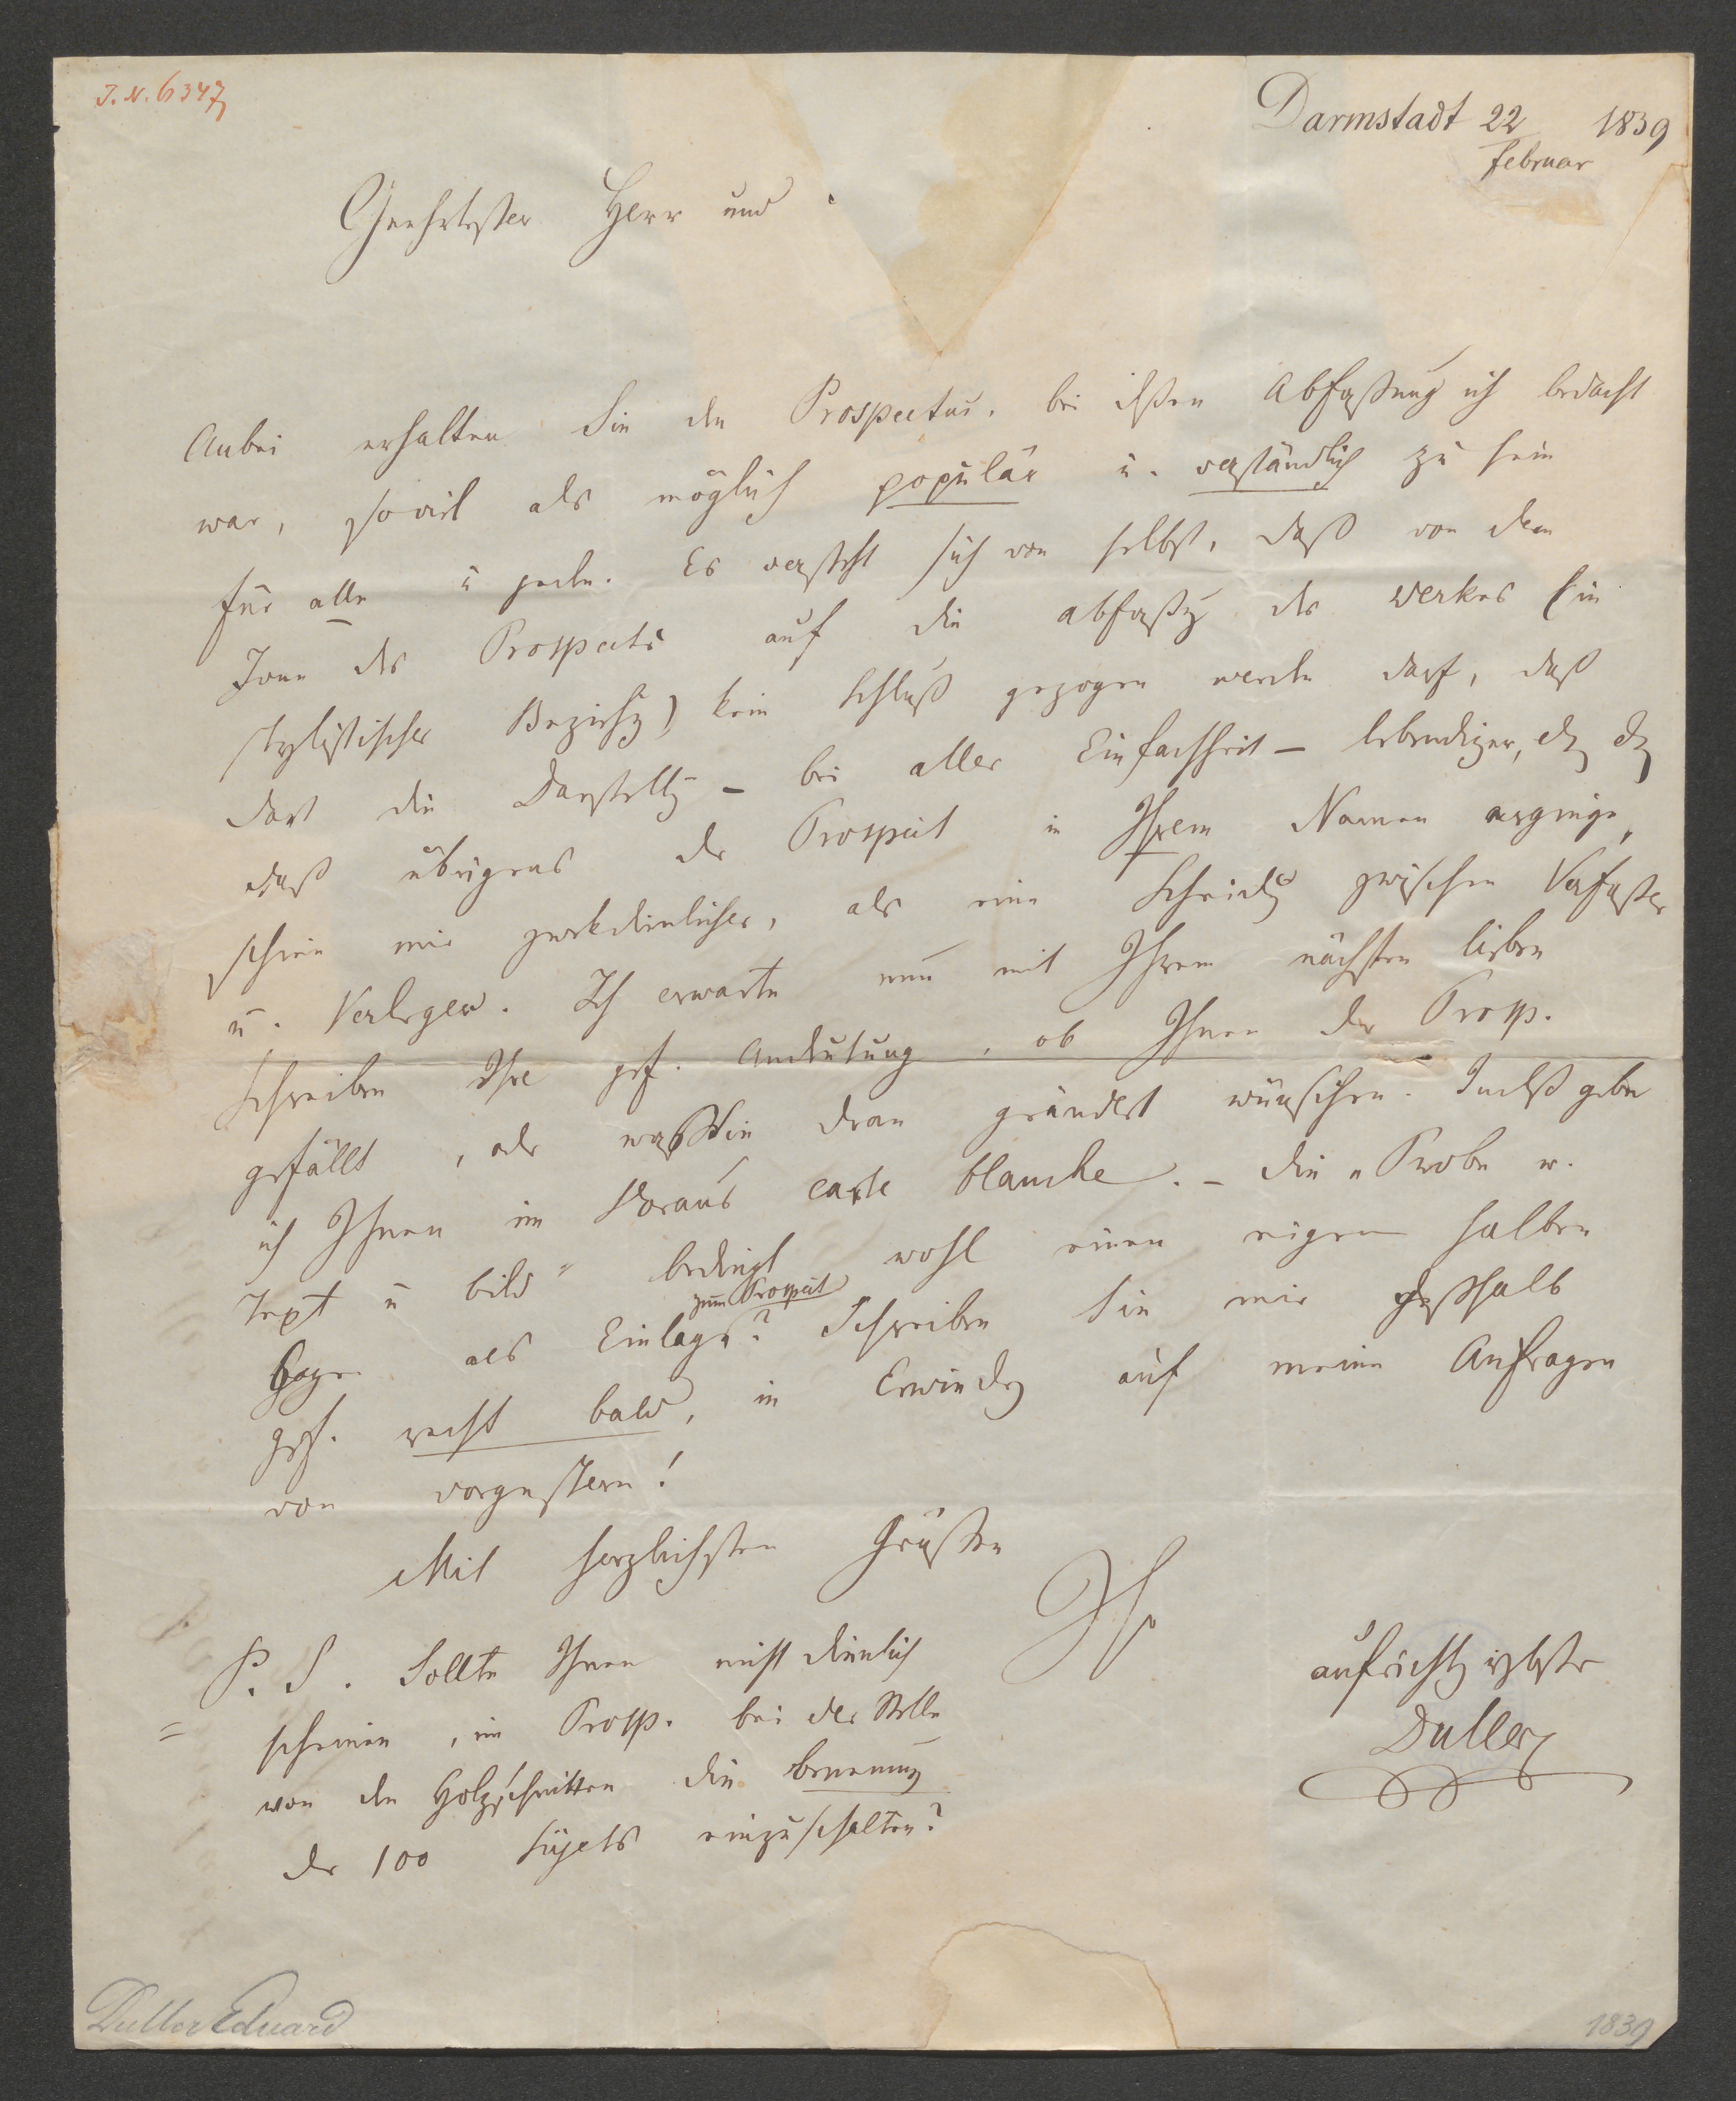 J. N. 6347
Darmstadt 22 1839
Februar
Geehrtester Herr und
Anbei erhalten Sie den Prospectus, bei deßen Abfaßung ich bedacht
war, soviel als möglich populär u. verständlich zu sein
für alle u jeden. Es versteht sich von selbst, daß von dem
Tone des Prospects auf die Abfaßg des Werkes (in
stylistischer Beziehg) kein Schluß gezogen werden darf, daß
dort die Darstellg – bei aller Einfachheit – lebendiger, etz etz
daß übrigens der Prospect in Ihrem Namen ergienge,
schien mir zweckdienlicher, als eine Scheidg zwischen Verfaßer
u. Verleger. Ich erwarte nun mit Ihrem nächsten lieben
Schreiben Ihre gef. Andeutung, ob Ihnen der Prosp.
gefällt, oder was Sie dran geändert wünschen. Indeß gebe
ich Ihnen im Voraus carte blanche. – Die „Probe v.
Text u Bild" bedingt wohl einen eigenen halben
zum Prospect
Bogen als Einlage? Schreiben Sie mir deßhalb
gef. recht bald, in Erwiedrg auf meine Anfragen
von vorgestern!
Mit herzlichsten Grüßen
Ihr
aufrichtg ergbstr
Duller
P. S. Sollte Ihnen nicht dienlich
scheinen, im Prosp. bei der Stelle
von den Holzschnitten die Benennung
der 100 Sujets einzuschalten?
Duller Eduard
1839